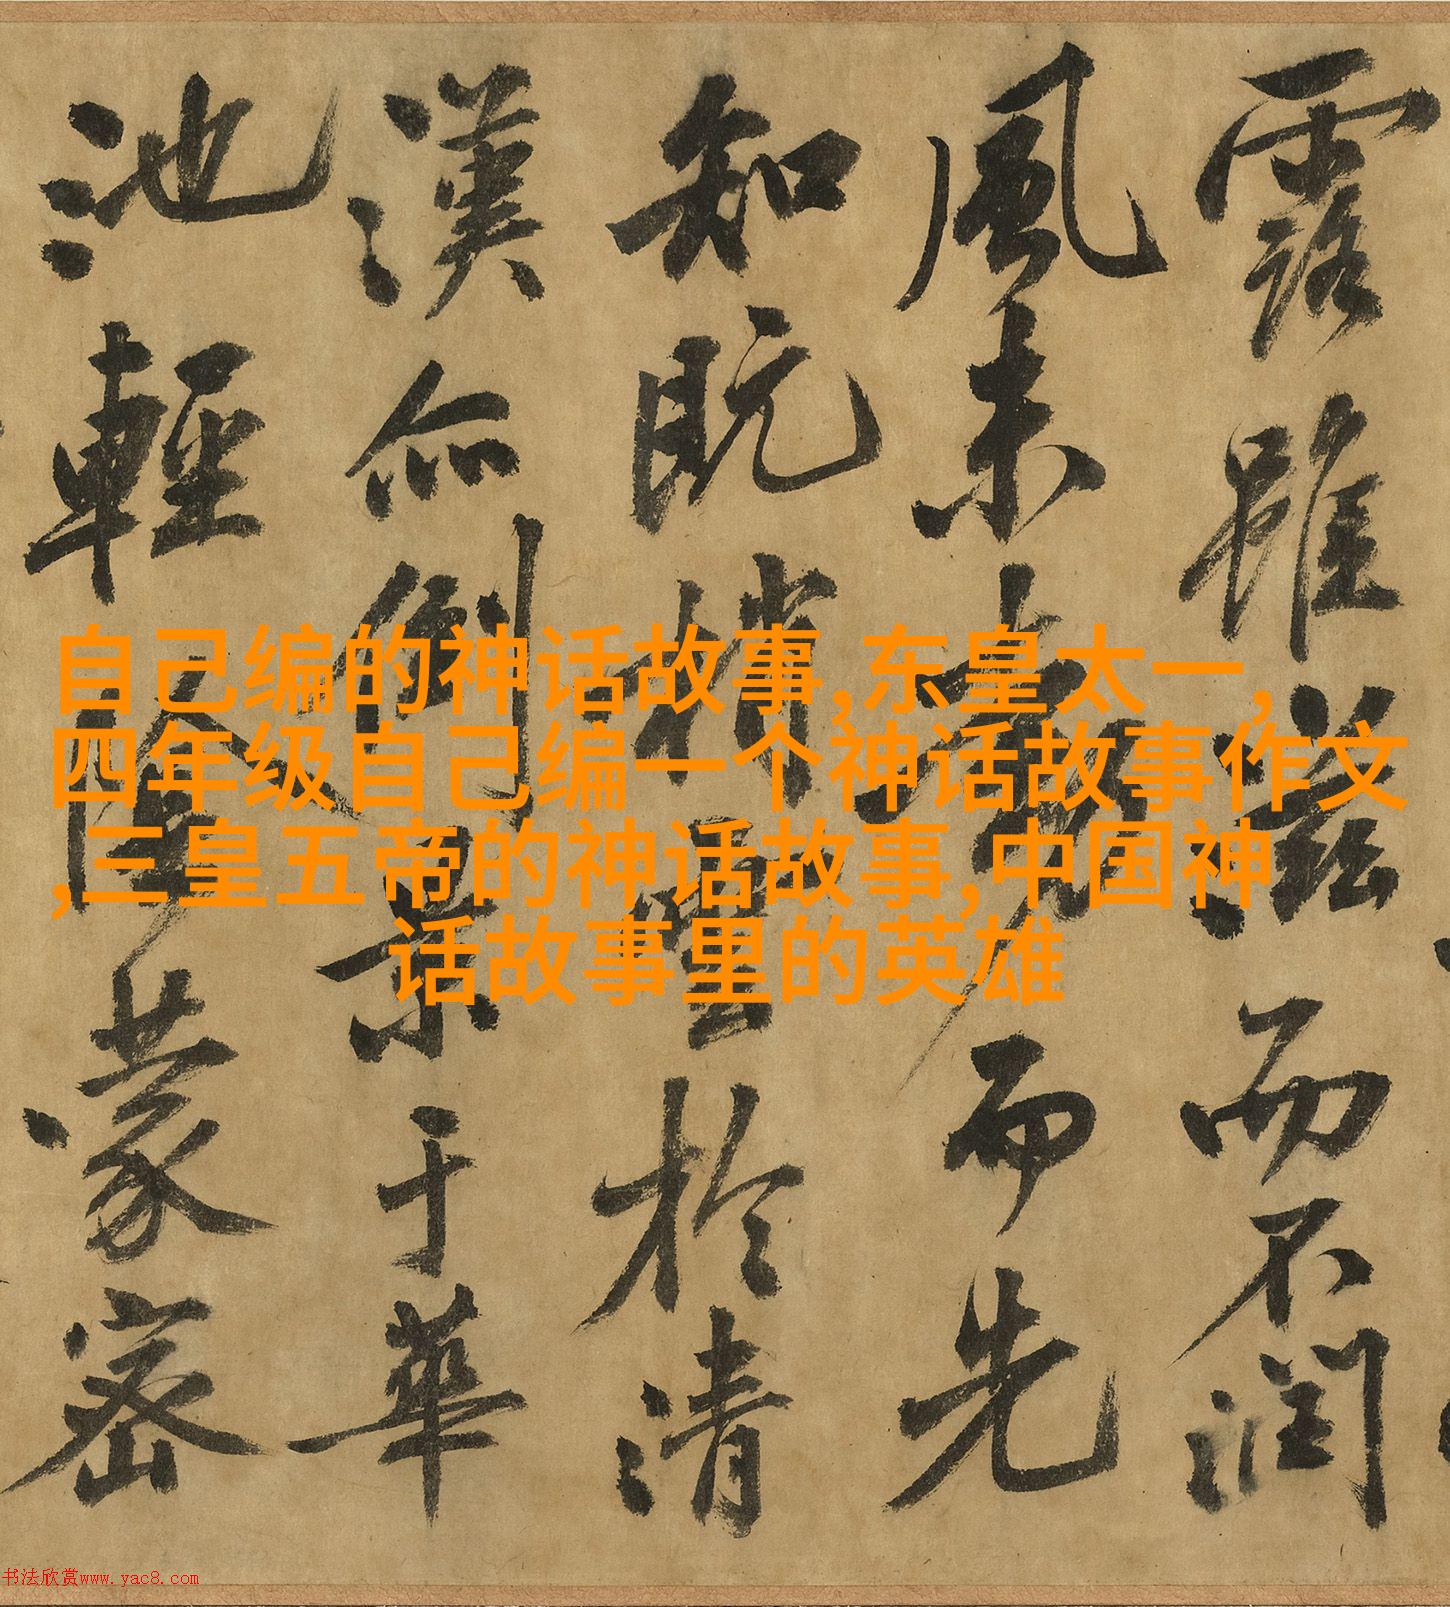 露雖滋而不潤
風未而先
知既梢雲於清
漢亦倒景于華
池輕陰蒙密
自己编的神话故事,东皇太一,
四年级自己编一个神话故事作文
,三皇五帝的神话故事,中国神
话故事里的英雄
书法欣赏www.yac8.com